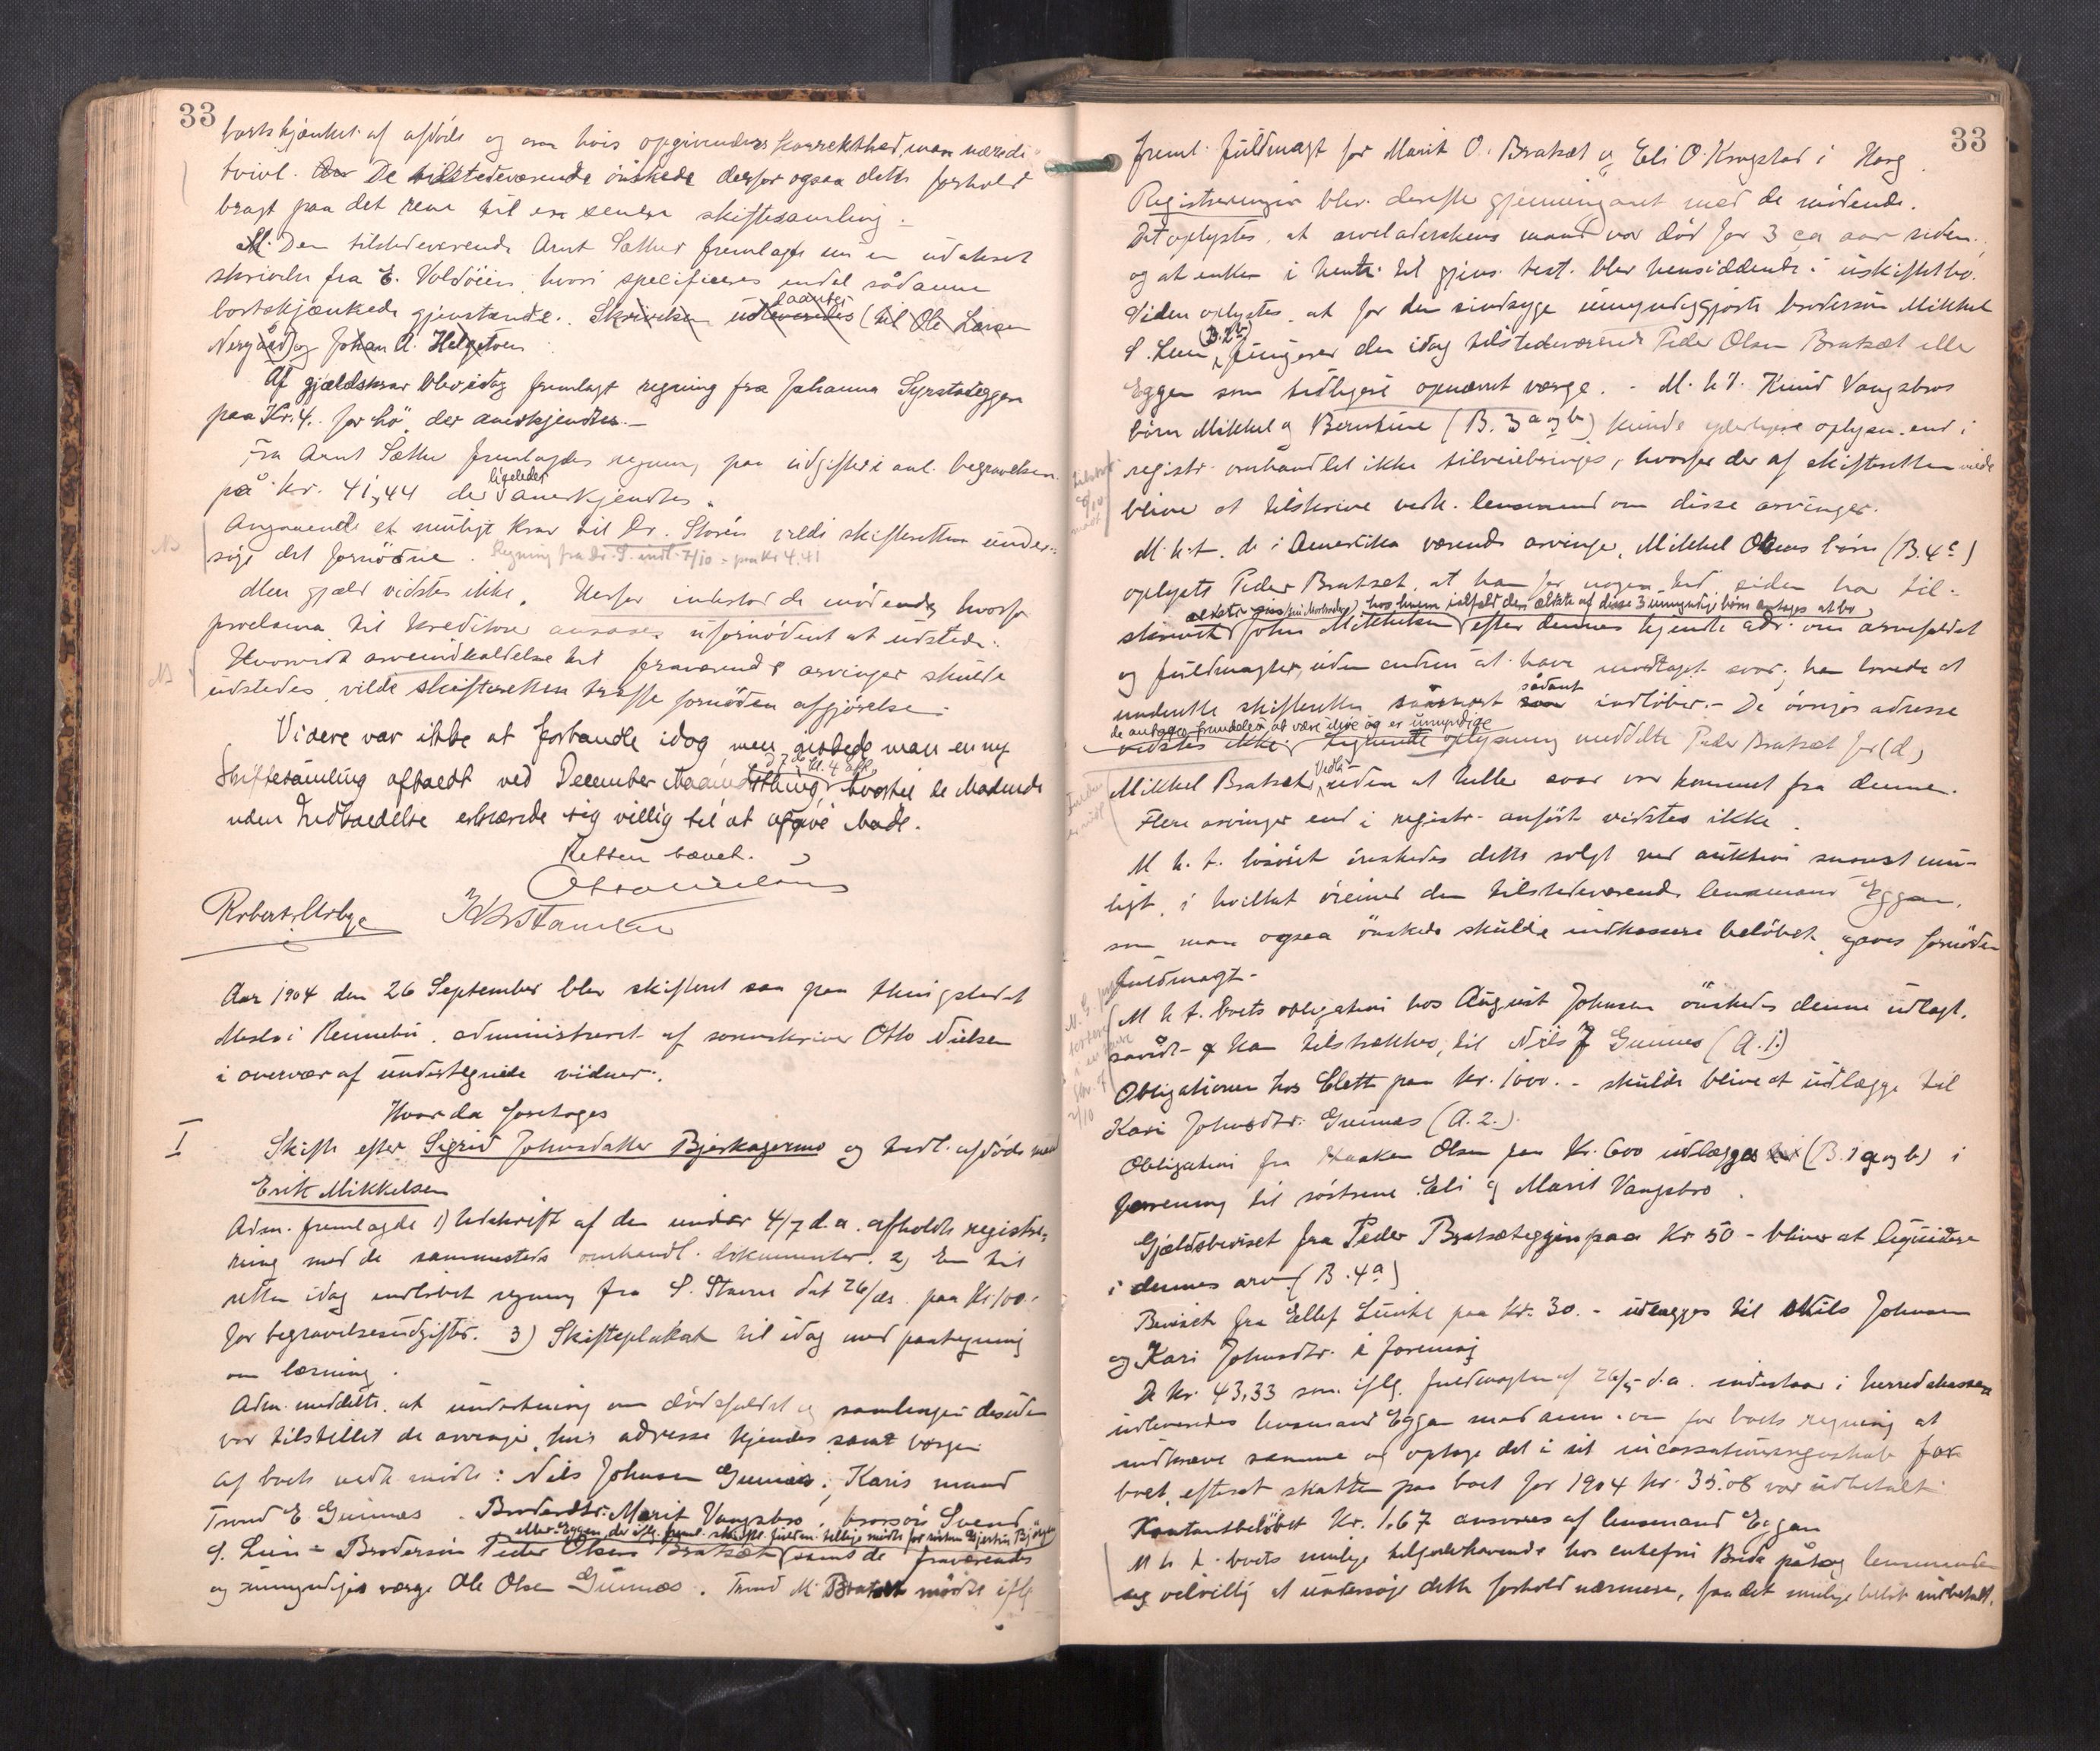 33
bortskjænket af afdöde og om hvis opgivendes korrekthed man nærede
tvivl. De tilstedeværende önskede derfor ogsaa dette forhold
bragt paa det rene til en senere skiftesamling.
Den tilstedeværende Arnt Sætter fremlagde nu en udateret
skrivelse fra E. Voldöien, hvori specificeres endel sådanne
bortskjænkede gjenstande. Skrivelsen udleveredes (til Ole Larsen
Nergård) og Johan A. Helgetoen
Af gjældskrav blev idag fremlagt regning fra Johanna Syrstadeggen
paa Kr. 4. for hö, der anerkjendtes.-
Fra Arnt Sætter fremlagdes regning paa udgifter i anl. begravelsen
på kr. 41,44 der ligeledes anerkjendtes.
NB
Angaaende et muligt krav til Dr. Storén vilde skifteretten under-
söge det fornödne. Regning fra dr. S. indl. 7/10 - paa kr 4.41
Mer gjæld vidstes ikke. Herfor indestod de mödende, hvorfor
proclama til kreditorer ansaaes ufornödent at udstede.
NB
Hvorvidt arveindkaldelse til fraværende arvinger skulde
udstedes, vilde skifteretten træffe fornöden afgjörelse.
Videre var ikke at forhandle idag men ønskede man en ny
d 7de kl. 4 eft.
Skiftesamling afholdt ved December Maanedsthing, hvortil de Mødende
uden Indkaldelse erklærede sig villig til at afgive Møde.
Retten hævet.
Otto Nielsen
Aar 1904 den 26 September blev skifteret sat paa thingstedet
Meslo i Rennebu, administreret af sorenskriver Otto Nielsen
i overvær af undertegnede vidner.
Hvor da foretoges
I
Skifte efter Sigrid Johnsdatter Bjørkaasmo og tidl. afdöde mand
Erik Mikkelsen
Adm. fremlagde 1) Udskrift af den under 4/7 d.a. afholdte registre-
ring med de sammesteds omhandl. dokumenter. 2) En til
retten idag indlöbet regning fra S. Stavne dat 26/ds. paa Kr. 100.-
for begravelsesudgifter. 3) Skifteplakat til idag med paategning
om læsning.
Adm. meddelte, at underretning om dödsfaldet og samlingen desuden
var tilstillet de arvinger, hvis adresse kjendes samt værgen
af boets vedk. mödte: Nils Johnsen Gunnæs; Karis mand
Trond E Gunnæs. Broderdtr. Marit Vangsbro, brorsön Svend
S. Lien - Brodersön Peder Olsen Bratsæt samt de fraværende
og umyndiges værge Ole Olsen Gunnæs. Trond M. Bratset mödte iflg
33
freml. fuldmagt for Marit O. Bratset og Eli O. Krogstad i Horg.
Registreringen blev derefter gjennemgaaet med de mödende.
Det oplystes, at arveladerskens mand var död for 3 ca aar siden,
og at enken i henh. til gjens. test. blev hensiddende i uskiftet bo.
Viden oplystes, at for den sindssyge umyndiggjorte brodersön Mikkel
S. Lien (B. 2b) fungerer den idag tilstedeværende Peder Olsen Bratsæt eller
Eggen som tidligere opnævnt værge. - M.h.t. Knud Vangsbros
börn Mikkel og Berntine (B. 3 a og b) kunde yderligere oplysn. end i
registr. omhandlet ikke tilveiebringes, hvorfor der af skifteretten vilde
blive at tilskrive vedk. lensmand om disse arvinger.
M.h.t. de i Amerika værende arvinge, Mikkel Olsens börn (B. 4c)
oplyste Peder Bratset, at han for nogen tid siden har til-
skrevet John Mikkelsen efter dennes kjendte adr. om arvefaldet
og fuldmagter, uden endnu at have modtaget svar; han lovede at
underrette skifteretten såsnart sådant indlöber. - De övriges adresse
de antages fremdeles at være ilive og er umyndige
vidstes ikke. Lignende oplysning meddelte Peder Bratset for (d)
Mikkel Bratset, uden at heller svar var kommet fra denne.
Flere arvinger end i registr. anfört vidstes ikke.
M.h.t. lösöret önskedes dette solgt ved auktion snarest mu-
ligt, i hvilket öiemed den tilstedeværende lensmand Eggan,
som man ogsaa önskede skulde indkassere belöbet, gaves fornöden
fuldmagt.-
M.h.t. boets obligation hos August Johnsen önskedes denne udlagt,
såvidt den kan tilstrækkes, til Nils J Gunnes (A. 1.)
Obligationen hos Elett paa kr. 1000.- skulde blive at udlægge til
Kari Johnsdtr. Gunnæs (A. 2.)
Obligation fra Haaken Olsen paa Kr. 600 udlægges (B. 1 a og b) i
forening til söstrene Eli og Marit Vangsbro.
Gjældsbeviset fra Peder Bratsæteggen paa Kr 50 - bliver at liquidere
i dennes arv (B. 4a)
Beviset fra Ellef Lunke paa kr. 30.- udlægges til Nils Johnsen
og Kari Johnsdtr. i forening
De kr. 43,33 som iflg. fuldmagten af 26/5 d.a. indestaar i herredskassen
udleveredes lensmand Eggan med anm. om for boets regning at
indkræve samme og optage det i sit incassationsregnskab for
boet, efterat skatten paa boet for 1904 kr. 35.08 var udbetalt.
Kontantbelöbet Kr. 1,67 ansvares af lensmand Eggan
M.h.t. boets mulige tilgodehavende hos enkefru Bude påtog lensmanden
sig velvillig at undersöge dette forhold nærmere, faa det mulige belöb indbetalt.